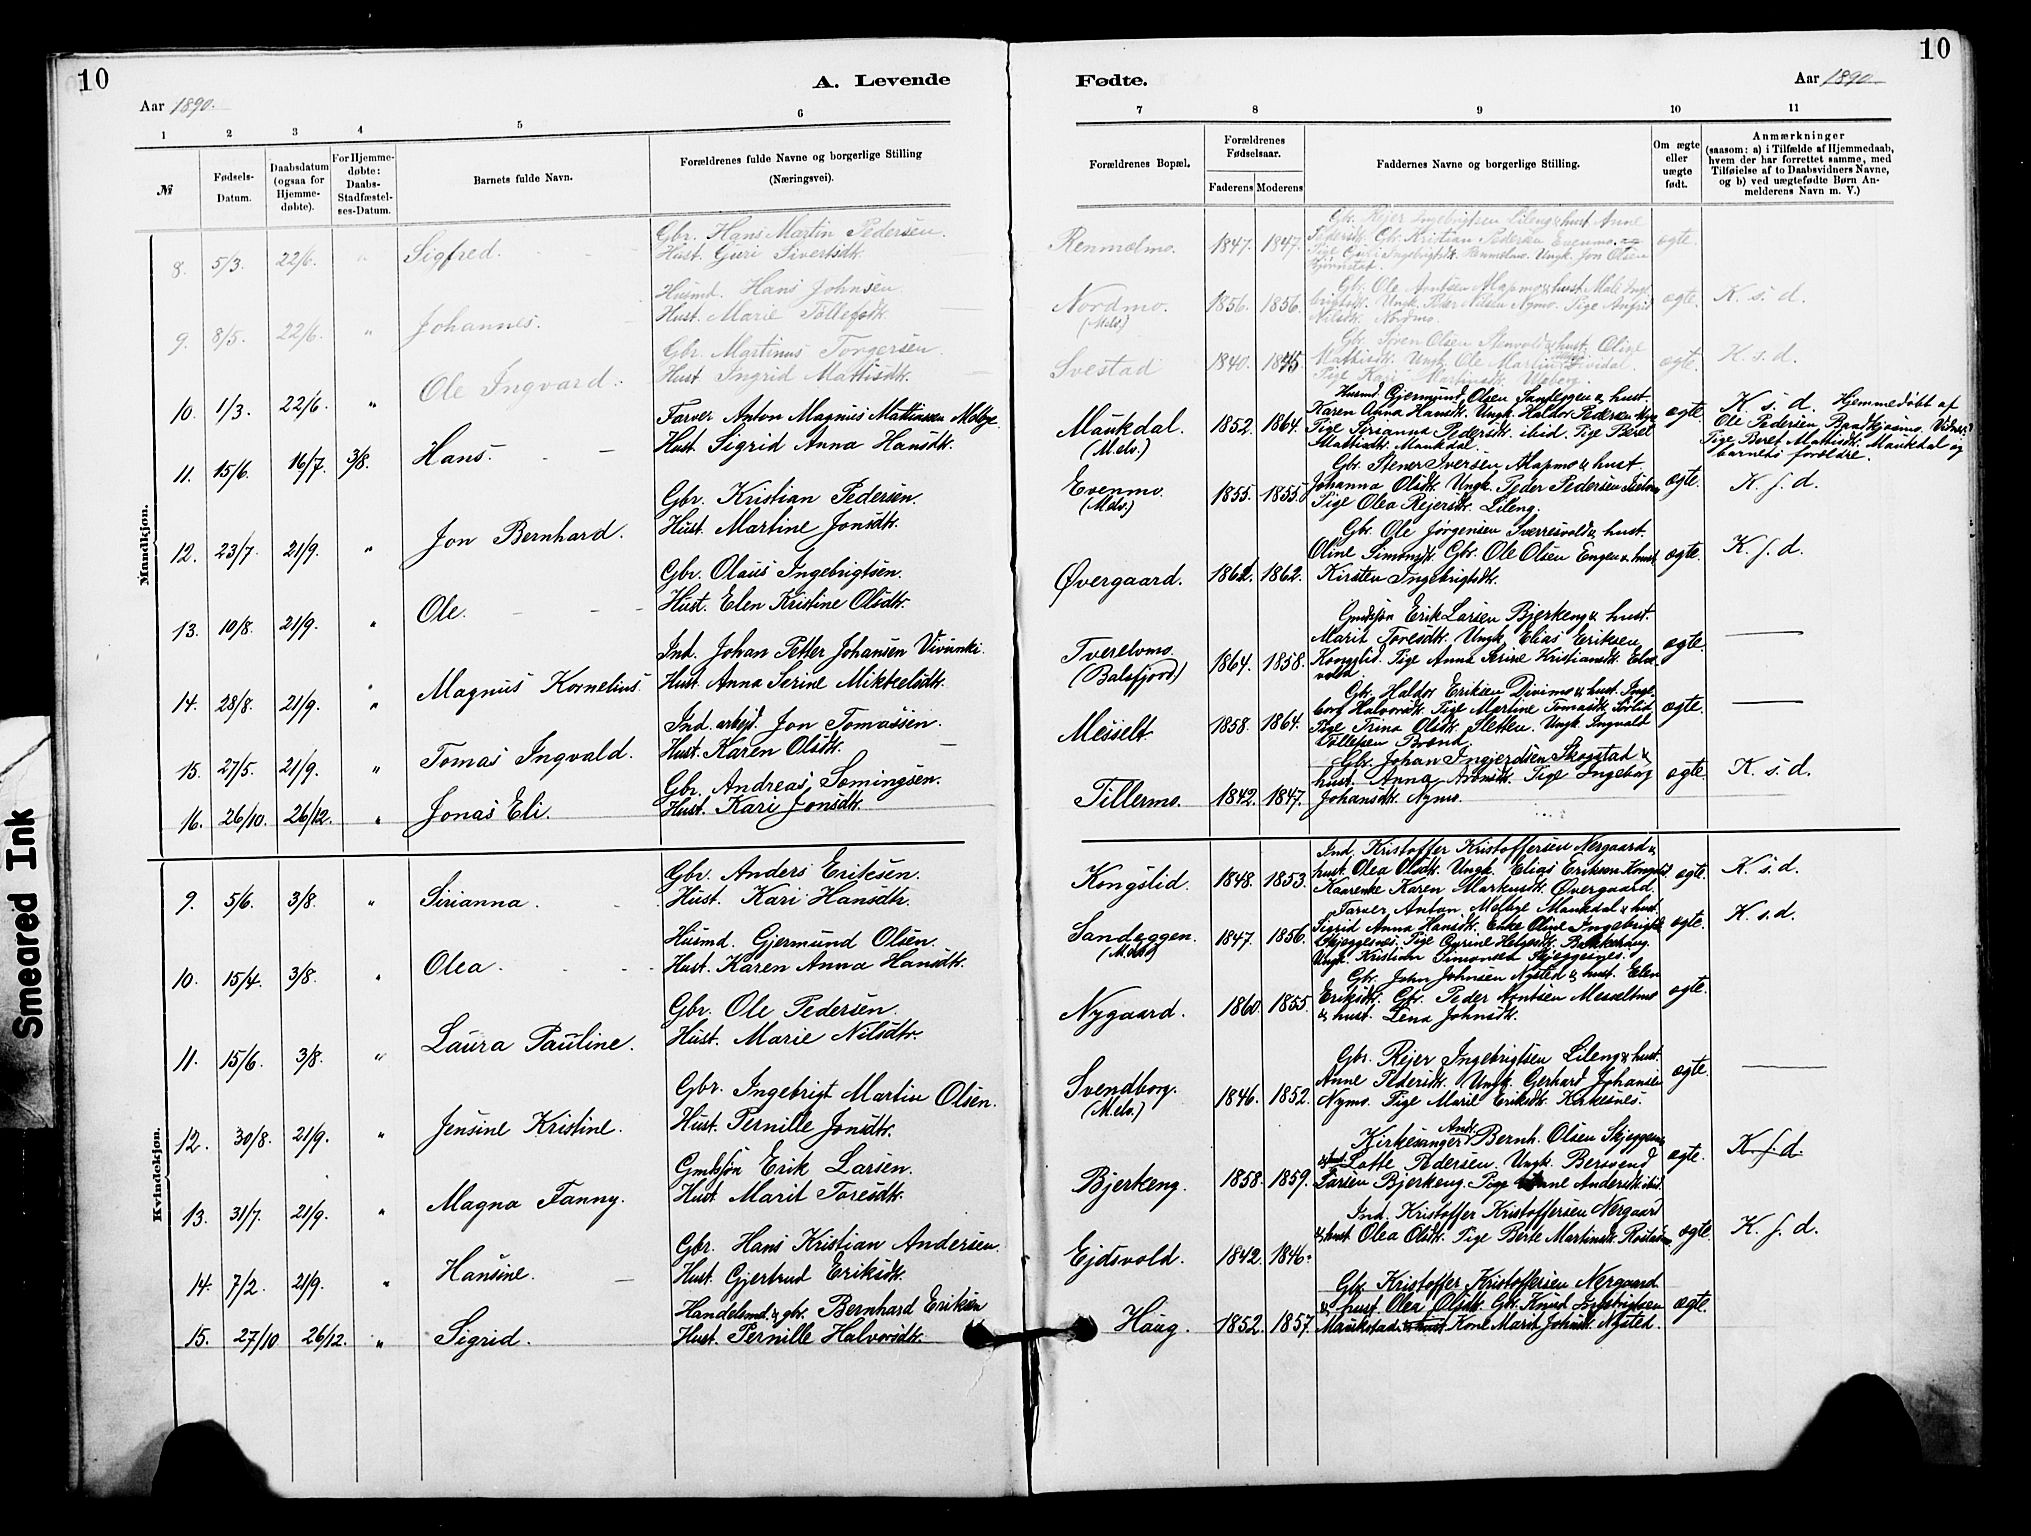 10
A. Levende
Aar 1890.
1 2 3 4 5 6
№
Fødsels-
Datum.
Daabsdatum
(ogsaa for
Hjemme-
døbte).
For Hjemme-
døbte:
Daabs-
Stadfæstel-
ses-Datum.
Barnets fulde Navn.
Forældrenes fulde Navne og borgerlige Stilling
(Næringsvei).
Mandkjøn.
8. 5/3. 22/6. " Sigfred.
Gbr. Hans Martin Pedersen.
Hust. Guri Sivertsdtr.
9. 8/5. 22/6. " Johannes.
Husmd. Hans Johnsen
Hust. Marie Tollefsdtr.
10. 1/3. 22/6. " Ole Ingvard.
Gbr. Martinus Torgersen.
Hust. Ingrid Mattisdtr.
11. 15/6. 16/7. 3/8. Hans.
Farver Anton Magnus Mathiassen Melbye.
Hust. Sigrid Anna Hansdtr.
12. 23/7. 21/9. " Jon Bernhard.
Gbr. Kristian Pedersen.
Hust. Martine Jonsdtr.
13. 10/8. 21/9. " Ole.
Gbr. Olaus Ingebrigtsen.
Hust. Elen Kristine Olsdtr.
14. 28/8. 21/9. " Magnus Kornelius.
Ind. Johan Petter Johansen Vivunki.
Hust. Anna Serine Mikkelsdtr.
15. 27/5. 21/9. " Tomas Ingvald.
Ind. arbejd. Jon Tomassen.
Hust. Karen Olsdtr.
16. 26/10. 26/12. " Jonas Eli.
Gbr. Andreas Somingsen.
Hust. Kari Jonsdtr.
Kvindekjøn.
9. 5/6. 3/8. " Sirianna.
Gbr. Anders Eriksen.
Hust. Kari Hansdtr.
10. 15/4. 3/8. " Olea.
Husmd. Gjermund Olsen.
Hust. Karen Anna Hansdtr.
11. 15/6. 3/8. " Laura Pauline.
Gbr. Ole Pedersen.
Hust. Marie Nilsdtr.
12. 30/8. 21/9. " Jensine Kristine.
Gbr. Ingebrigt Martin Olsen.
Hust. Pernille Jonsdtr.
13. 31/7. 21/9. " Magna Fanny.
Gmdssøn Erik Larsen.
Hust. Marit Toresdtr.
14. 7/2. 21/9. " Hansine.
Gbr. Hans Kristian Andersen.
Hust. Gjertrud Eriksdtr.
15. 27/10 26/12. " Sigrid.
Handelsmd. & gbr. Bernhard Eriksen
Hust. Pernille Halvorsdtr.
Smeared Ink
10
Fødte.
Aar 1890
7 8 9 10 11
Forældrenes Bopæl.
Forældrenes
Fødselsaar.
Faderens Moderens
Faddernes Navne og borgerlige Stilling.
Om ægte
eller
uægte
født.
Anmærkninger
(saasom: a) i Tilfælde af Hjemmedaab,
hvem der har forrettet samme, med
Tilføielse af to Daabsvidners Navne,
og b) ved uægtefødte Børn An-
melderens Navn m. V.)
Renmælmo. 1847. 1847. ægte.
Gbr. Rejer Ingebrigtsen Lileng & hust. Anne
Pedersdtr. Gbr. Kristian Pedersen Evenmo.
Pige Guri Ingebrigtsdtr. Renmælmo. Ungk. Jon Olsen
Bjørnstad.
Nordmo. (Melv.) 1856. 1856. ægte. K. s. d.
Gbr. Ole Arntsen Alapmo & hust. Mali Inge-
brigtsdtr. Ungk. Peder Nilsen Nymo. Pige Ingrid
Nilsdtr. Nordmo.
Svestad 1840. 1845 ægte. K. s. d.
Gbr. Søren Olsen Stenvold & hust. Oline
Mathisdtr. Ungk. Ole Martin Dividal.
Pige Kari Martinsdtr.
Maukdal. (Melv.) 1852. 1864. ægte.
Husmd. Gjermund Olsen Sandeggen & hust.
Karen Anna Hansdtr. Ungk. Haldor Pedersen
Pige Sirianna Pedersdtr. ibid. Pige Beret
Mattisdtr. Maukdal.
K. s. d. Hjemmedøbt af
Ole Pedersen Vidner:
Pige Beret Mattisdtr. Maukdal og
barnets forældre.
Evenmo. (Melv.) 1855. 1855. ægte. K. s. d.
Gbr. Stener Iversen Alapmo & hust.
Johanna Olsdtr. Ungk. Peder Pedersen
Pige Olea Rejersdtr. Lileng.
Øvergaard. 1862. 1862. ægte. K. s. d.
Gbr. Ole Jørgensen Sverresvold & hust.
Oline Simonsdtr. Gbr. Ole Olsen Engen & hust
Kirsten Ingebrigtsdtr.
Tverelvmo. (Balsfjord) 1864. 1858. ægte.
Gmdssøn Erik Larsen Bjerkeng & hust.
Marit Toresdtr. Ungk. Elias Eriksen
Kongslid. Pige Anna Serine Kristiansdtr. Elve-
vold
Messelt. 1858. 1864. ægte.
Gbr. Haldor Eriksen Divimo & hust. Inge-
borg Halvorsdtr. Pige Martine Tomasdtr. Sørlid.
Pige Trina Olsdtr. Sletten. Ungk. Ingvald
Tollefsen Brand.
Tillermo. 1842. 1847. ægte. K. s. d.
Gbr. Johan Ingjerdsen Skogstad &
hust. Anna Aronsdtr. Pige Ingeborg
Johansdtr. Nymo.
Kongslid. 1848. 1853. ægte. K. s. d.
Ind. Kristoffer Kristoffersen Nergaard &
hust. Olea Olsdtr. Ungk. Elias Eriksen Kongslid
Kaarenke Karen Markusdtr. Øvergaard.
Sandeggen. (Melv.) 1847. 1856. ægte. K. s. d.
Farver Anton Melbye Maukdal & hust.
Sigrid Anna Hansdtr. Enke Oline Ingebrigtsd.
Skjeggesnes. Pige Gurine Helgesdtr. Bakkehaug.
Ungk. Kristian Simonsen Skjeggesnes.
Nygaard. 1860. 1855. ægte.
Gbr. John Johnsen Nysted & hust. Elen
Eriksdtr. Gbr. Peder Arntsen Messeltmo
& hust. Lena Johnsdtr.
Svendborg. (Melv.) 1846. 1852. ægte.
Gbr. Rejer Ingebrigtsen Lileng & hust.
Anne Pedersdtr. Ungk. Gerhard Johansen
Nymo. Pige Marie Eriksdtr. Kirkesnes.
Bjerkeng. 1858. 1859. ægte. K. s. d.
Kirkesanger Andr. Bernh. Olsen Skjeggesnes
& hust. Lotte Pedersen. Ungk. Bersvend
Larsen Bjerkeng. Pige Anne Andersdtr. ibid.
Ejdsvold. 1842. 1846. ægte. K. s. d.
Ind. Kristoffer Kristoffersen Nergaard
& hust. Olea Olsdtr. Pige Berte Martinsdtr. Rostad
Haug. 1852. 1857. ægte.
Gbr. Kristoffer Kristoffersen Nergaard
& hust. Olea Olsdtr. Gbr. Knud Ingebrigtsen
Maukstad & hust. Kone Marit Johnsdtr. Nysted.